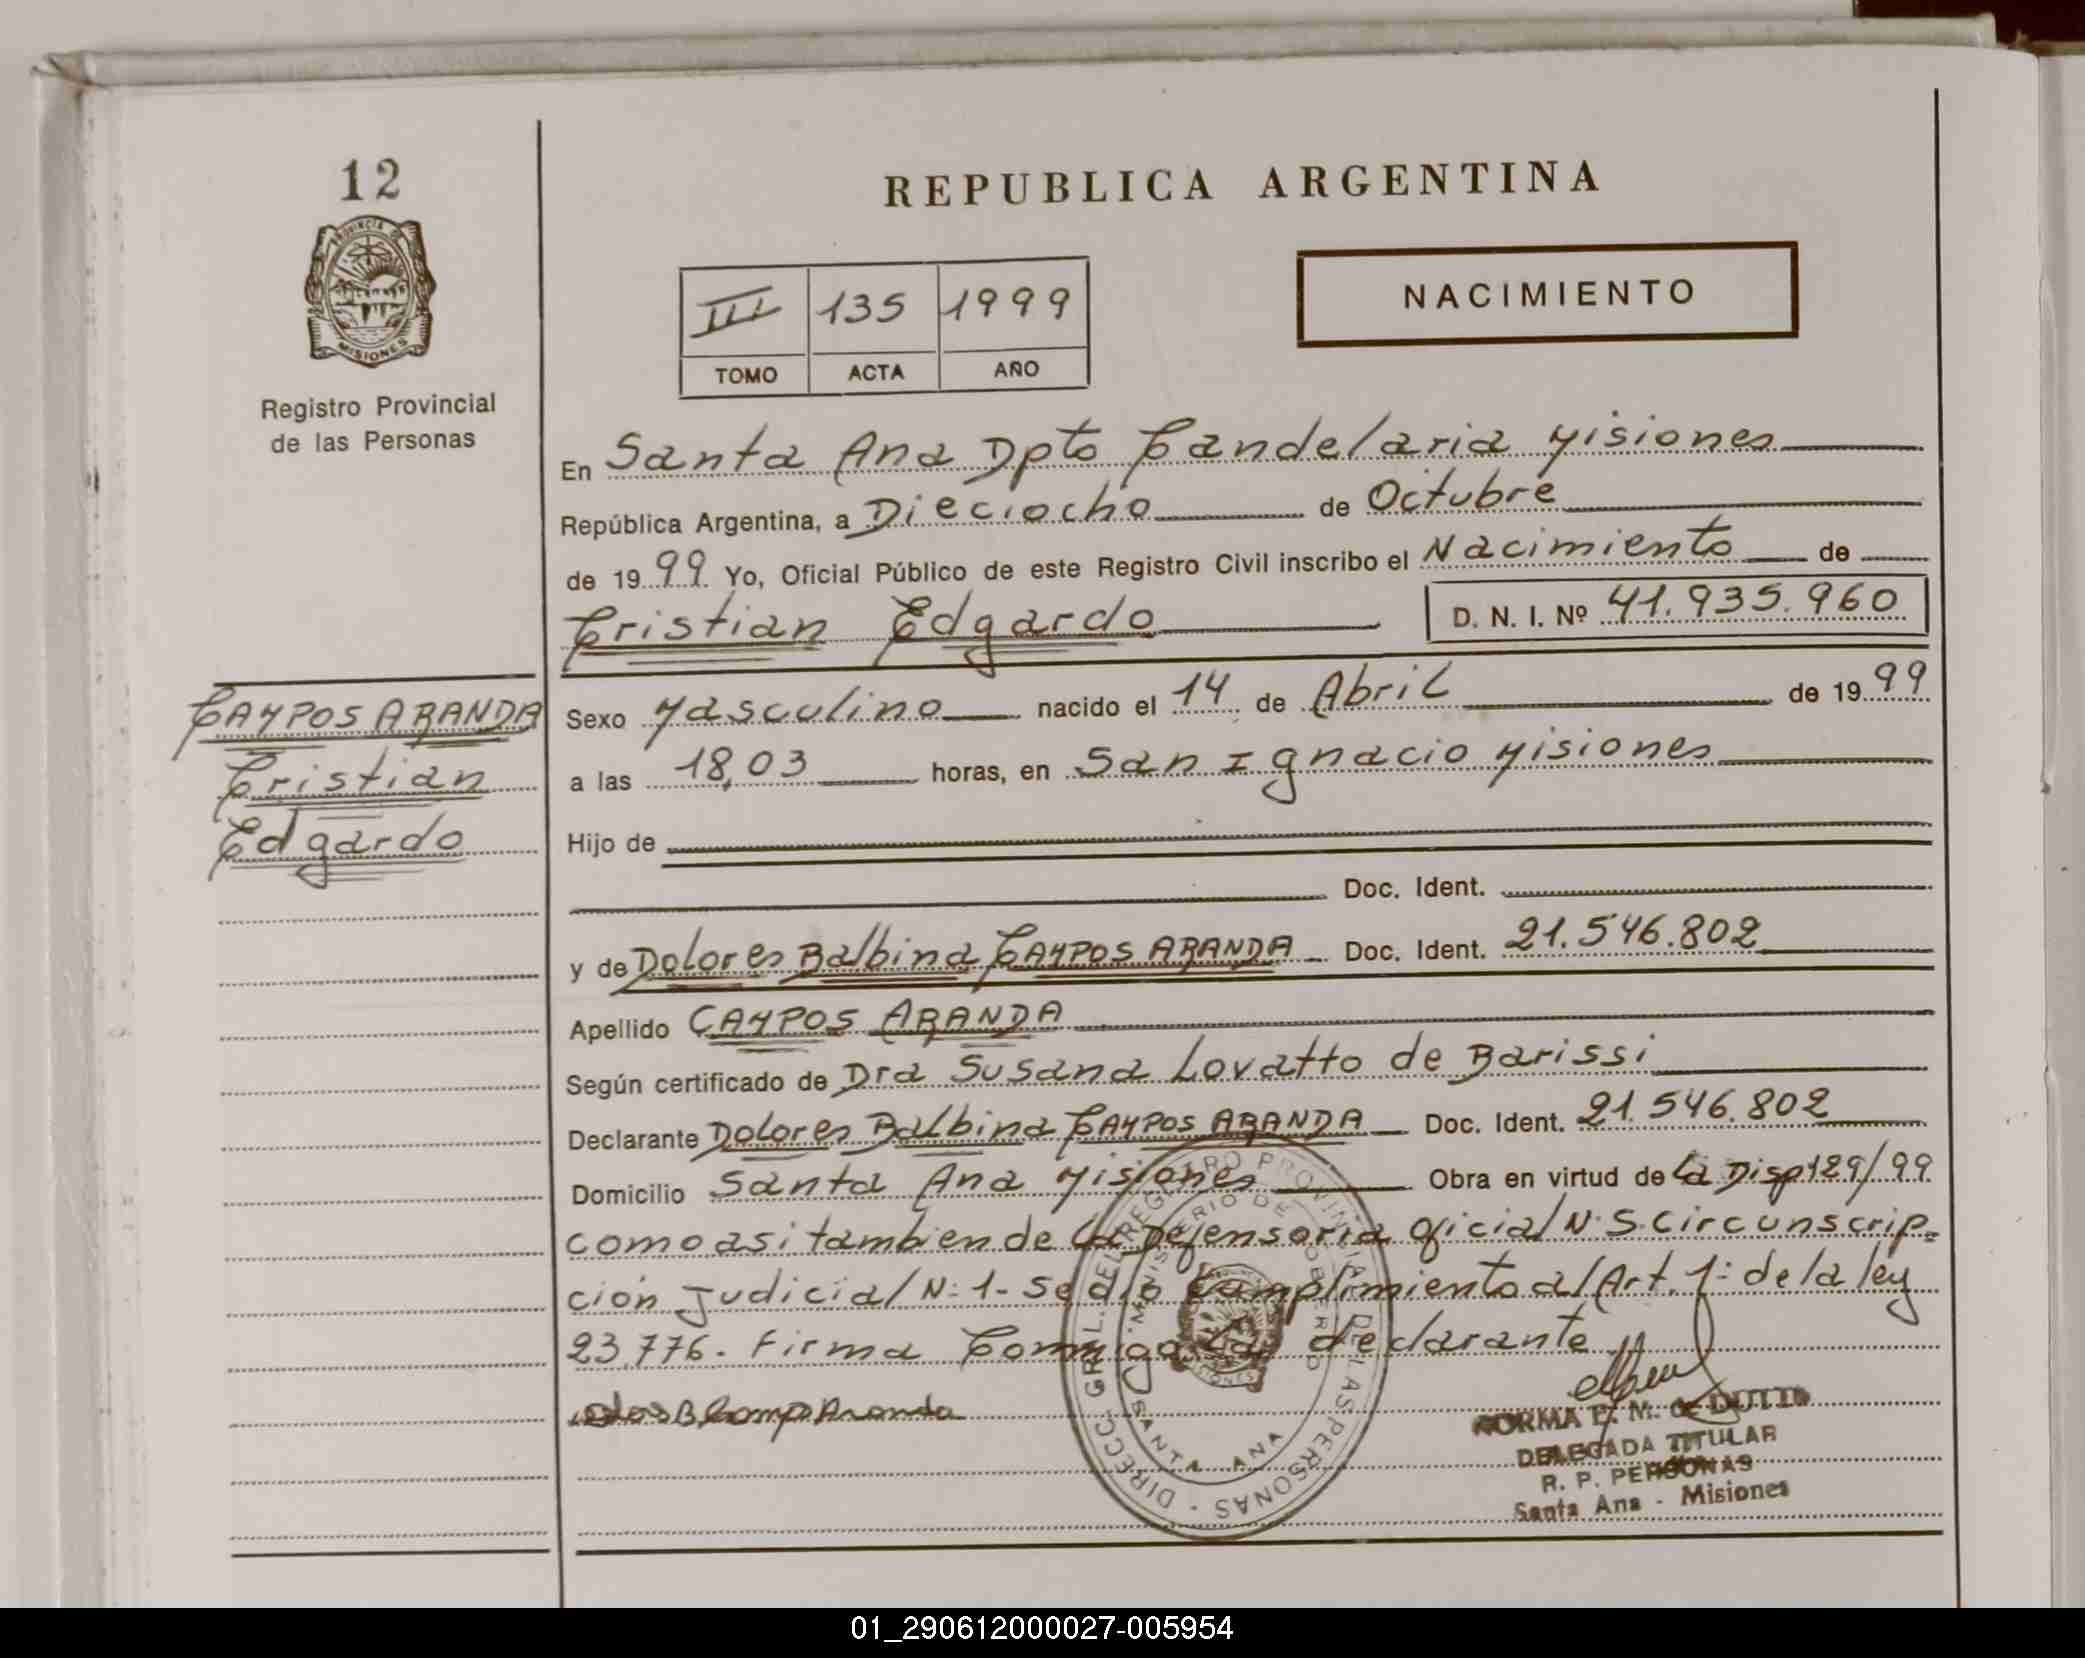 12
PROVINCIA DE
MISIONES
Registro Provincial
de las Personas
CAMPOS ARANDA
Cristian
Edgardo
REPUBLICA ARGENTINA
III 135 1999
TOMO ACTA AÑO
NACIMIENTO
En Santa Ana Dpto Candelaria Misiones
República Argentina, a Dieciocho de Octubre
de 1999 Yo, Oficial Público de este Registro Civil inscribo el Nacimiento de
Cristian Edgardo D. N. I. Nº 41.935.960
Sexo Masculino nacido el 14 de Abril de 1999
a las 18,03 horas, en San Ignacio Misiones
Hijo de
Doc. Ident.
y de Dolores Balbina CAMPOS ARANDA Doc. Ident. 21.546.802
Apellido CAMPOS ARANDA
Según certificado de Dra Susana Lovatto de Barissi
Declarante Dolores Balbina CAMPOS ARANDA Doc. Ident. 21.546.802
Domicilio Santa Ana Misiones Obra en virtud de la Disp 129/99
como asi tambien de la Defensoria oficial N: 5. Circunscrip=
ción Judicial N: 1- Se dió Cumplimiento al Art. 1: de la ley
23.776. Firma Conmigo la declarante
DIRECC. GRL. DEL REGISTRO PROVINCIAL DE LAS PERSONAS
MINISTERIO DE GOBIERNO
MISIONES
SANTA ANA
NORMA E. M. de
DELEGADA TITULAR
R. P. PERSONAS
Santa Ana - Misiones
01_290612000027-005954